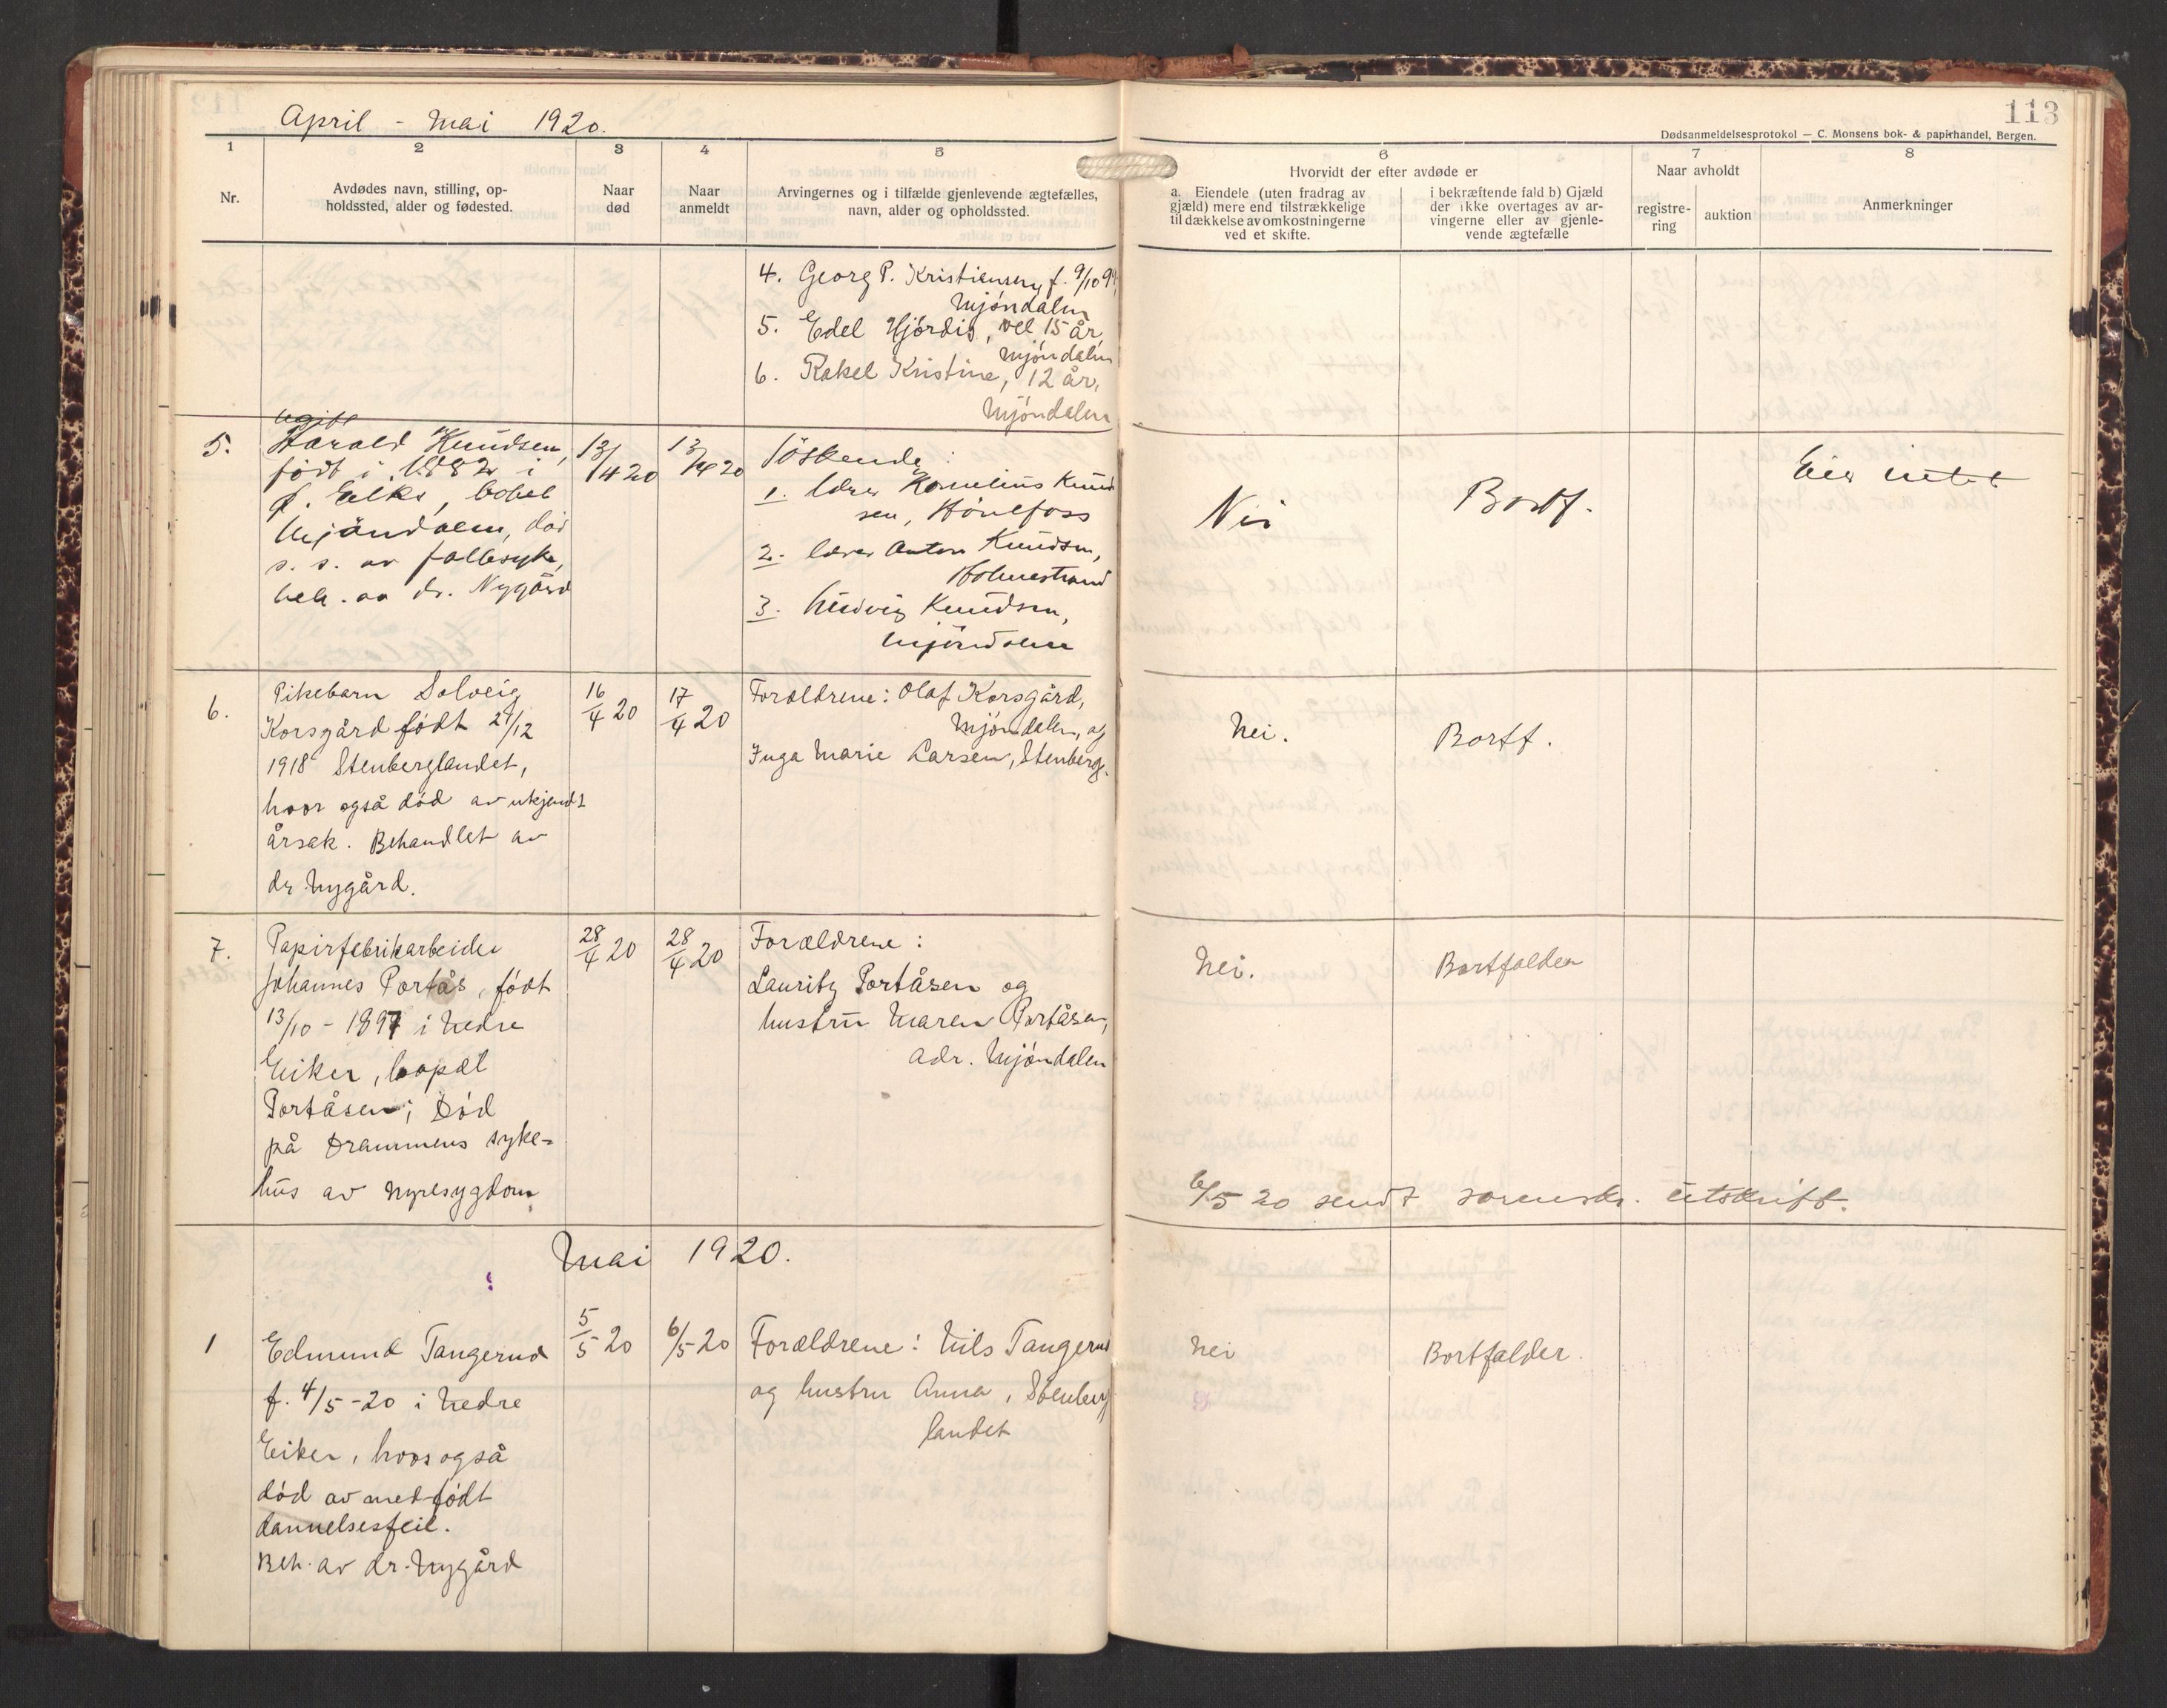 April - Mai 1920.
113
Dødsanmeldelsesprotokol — C. Monsens bok- & papirhandel, Bergen.
1
2
3
4
5
6
7
8
Nr.
Avdødes navn, stilling, op-
holdssted, alder og fødested.
Naar
død
Naar
anmeldt
Arvingernes og i tilfælde gjenlevende ægtefælles,
navn, alder og opholdssted.
Hvorvidt der efter avdøde er
a. Eiendele (uten fradrag av
gjæld) mere end tilstrækkelige
til dækkelse av omkostningerne
ved et skifte.
i bekræftende fald b) Gjæld
der ikke overtages av ar-
vingerne eller av gjenle-
vende ægtefælle
Naar avholdt
registre-
ring
auktion
Anmerkninger
4. Georg P. Kristiansen, f. 9/10
Mjøndalen
5. Edel Hjørdis, vel 15 år,
Mjøndalen
6. Rakel Kristine, 12 år,
Mjøndalen
5.
ugift
Harald Knudsen,
født i 1882 i
Ø. Eiker, bopæl
Mjøndalen, død
s. s. av faldesyke,
beh. av dr. Nygård
13/4 20
13/4 20
Søskende:
1. lærer Kornelius Knud
sen, Hønefoss
2. lærer Anton Knudsen,
Holmestrand
3. Ludvig Knudsen,
Mjøndalen
Nei
Bortf.
Eier intet
6.
Pikebarn Solveig
Korsgård født 27/12
1918 Stenberglandet,
hvor også død av ukjendt
årsak. Behandlet av
dr. Nygård.
16/4 20
17/4 20
Forældrene: Olaf Korsgård,
Mjøndalen, og
Inga Marie Larsen, Stenberg.
Nei.
Bortf.
7.
Papirfabrikarbeider
Johannes Portås, født
13/10 - 1897 i Nedre
Eiker, bopæl
Portåsen; Død
på Drammens syke-
hus av Nyresygdom.
28/4 20
28/4 20
Forældrene:
Lauritz Portåsen og
hustru Maren Portåsen,
adr. Mjøndalen
Nei.
Bortfalder
6/5 20 sendt sorenskr. utskrift.
Mai 1920.
1
Edmund Tangerud
f. 4/5-20 i Nedre
Eiker, hvor også
død av medfødt
dannelsesfeil.
Beh. av dr. Nygård
5/5 20
6/5-20
Forældrene: Nils Tangerud
og hustru Anna, Stenberg
landet
Nei
Bortfalder.